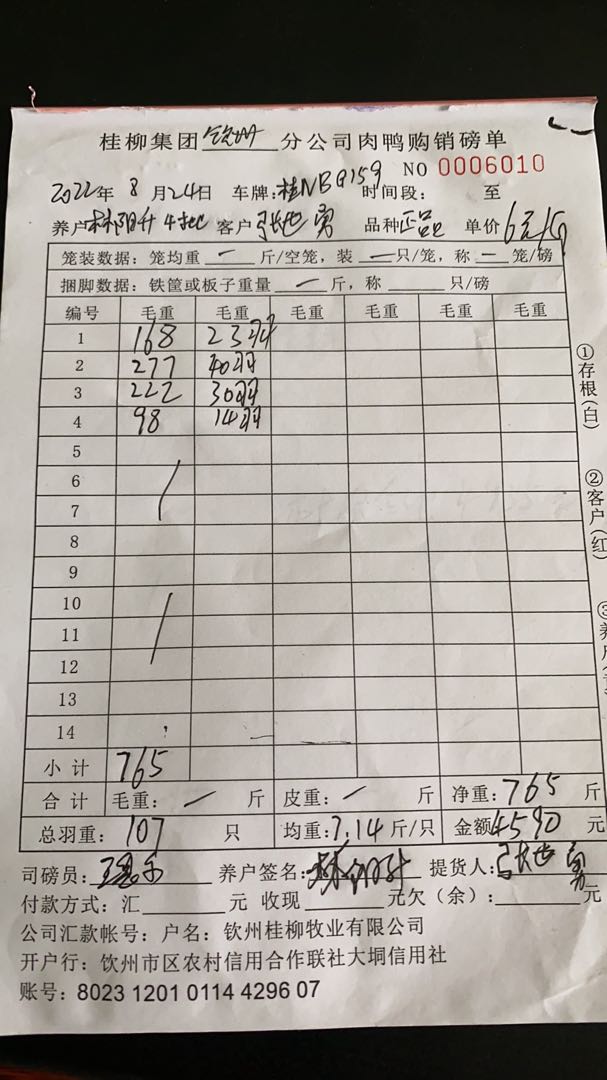 桂柳集团钦州分公司肉鸭购销磅单
NO 0006010
2022年8月24日 车牌:桂NB9159 时间段: 至
养户 林阳升 4批 客户 张地勇 品种正品 单价6元/斤
笼装数据:笼均重 一 斤/空笼,装 一 只/笼,称 一 笼/磅
捆脚数据:铁筐或板子重量 一 斤,称 只/磅
编号 毛重 毛重 毛重 毛重 毛重 毛重
1 168 23羽
2 277 40羽
3 222 30羽
4 98 14羽
5
6
7
8
9
10
11
12
13
14
小计 765
合计 毛重: 一 斤 皮重: 一 斤 净重:765斤
总羽重:107只 均重:7.14斤/只 金额4590元
司磅员: 养户签名: 林阳升 提货人:张地勇
付款方式:汇 元 收现 元欠(余): 元
公司汇款帐号:户名:钦州桂柳牧业有限公司
开户行:钦州市区农村信用合作联社大垌信用社
账号:8023 1201 0114 4296 07
①存根(白)
②客户(红)
③养户